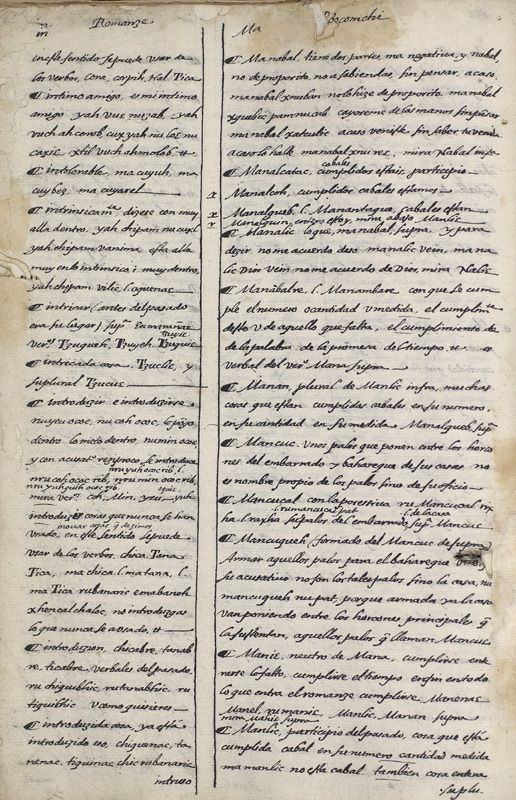 Romanze
en este sentido se puede usar de
los verbos, cora, corpih, Hal, Tica
¶ intimo amigo, es mi intimo
amigo yah vuc nuzah, yah
vuch ah corob, cux yah nu loc nu
caxic, xtil vuch ahmolob, tt
¶ intolerable, ma cuyuh, ma
cuybez, ma cuyarel
¶ intrinsicamte dizese con muy
alla dentro, yah chipam nu cuxl
yah chipam vanima, esta alla
muy en lo intrinsico i muy dentro,
yah chipam vilic, l, oquenac
¶ intricar (antes del pasado
era su lugar) supa enmarañar
verb. Tzuqueh, Tzuyeh, Tzuyuc
¶ intricada cosa, Tzuclic, y
su plural Tzucuc
¶ introduzir e introduzirse
nuyeu ococ, nu coh ococ, le pongo
dentro lo meto dentro, numin ococ
y con acusato reciproco, se introduce
nru yuh ococ rib, l,
nru coh ococ rib, nru min ococ rib
mira verbo Coh, Min, Yeu, yuh
introduzir cosas que nunca se han
inouar cosas q̃ dezimos
usado, en este sentido se puede
usar de los verbos, chica, Tana
Tica, ma chica l, matana, l,
ma Tica rubanaric emabanoh
xhencal chalic, no introduzgas
lo que nunca se a usado, tt
¶ introduzion, chicabre, tanab
re, ticabre, verbales del pasado,
ru chiguibhic, rutanabhic, ru
tiguibhic v como quisieres
¶ introduzida cosa, ya esta
introduzido eso, chiguanac, ta
nenac, tiguinac chic rubanaric
intruso
Ma Pocomchi
¶ Manabal tiene dos partes, ma negativa, y nabal,
no de proposito, no a sabiendas, sin pensar, acaso,
manabal xnuban, no lo hize de proposito, manabal
xquebic pam nucab, cayoseme de las manos sin pensar
manabal xatculic acaso veniste sin saber tu venida
acaso lo halle manabal xnu rec, mira Nabal infra
cabales
¶ Manalcatac, cumplidos estais, participio
Manalcoh, cumplidos cabales estamos
Manalqueb, l, Manantaque, cabales estan
¶ Manalic lo que, manabal, supra, y para
dezir no me acuerdo deso manalic vein, ma na
lic Dios vein no me acuerdo de Dios, mira Nalic
¶ Manabalre, l, Manambare con que se cum
ple el numero o cantidad v medida, el cumplimto
desto v de aquello que falta, el cumplimiento de
de la palabra de la promesa del tiempo tt es
verbal del verbo Mana supra
¶ Manan, plural de Manlic infra, muchas
cosas que estan cumplidas cabales en su numero,
en su cantidad en su medida Manalqueb, supra
¶ Mancuc, Unos palos que ponen entre los horco
nes del embarrado y bahareque de sus casas no
es nombre propio de los palos sino de su oficio
¶ Mancucal con la posesiva ru Mancucal rix
l, rumancucal pat l, de la casa
ha l, raxha sus palos del embarrado supra Mancuc
¶ Mancuqueh (formado del Mancuc de supra)
Armar aquellos palos para el bahareque
su acusativo no son los tales palos sino la casa, nu
mancuqueh nu pat, porque armada ya la casa
van poniendo entre los horcones principales q̃
la sustentan, aquellos palos q̃ llaman Mancuc
¶ Manic, neutro de Mana, cumplirse ente
rarse lo falto, cumplirse el tiempo en fin en todo
lo que entra el romanze cumplirse, Manenac
Manel, rumanic Manlic, Manan supra
¶ Manlic, participio del pasado, cosa que esta
cumplida cabal en su numero cantidad medida
ma manlic no esta cabal, tambien cosa entera
su plu